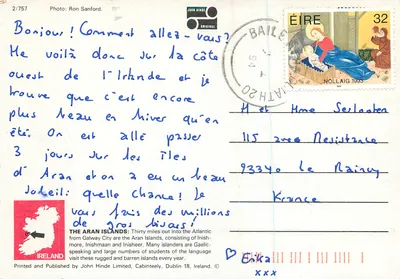 2/757
Photo: Ron Sanford.
JOHN HINDE
ORIGINAL
Bonjour! Comment allez-vous?
Me voilà donc sur la côte
ouest de l'Irlande et je
trouve que c'est encore
plus beau en hiver qu'en
été. On est allé passer
3 jours sur les îles
d'Aran et on a eu un beau
soleil: quelle chance! Je
vous fais des millions
de gros bisous!
ÉIRE 32
NOLLAIG
BAILE
M et Mme
115 ave Résistance
93340 Le Raincy
France
Erika
xxx
IRELAND
THE ARAN ISLANDS: Thirty miles out into the Atlantic
from Galway City are the Aran Islands, consisting of Inish-
more, Inishmaan and Inisheer. Many islanders are Gaelic-
speaking and large numbers of students of the language
visit these rugged and barren islands every year.
Printed and Published by John Hinde Limited, Cabinteely, Dublin 18, Ireland ©